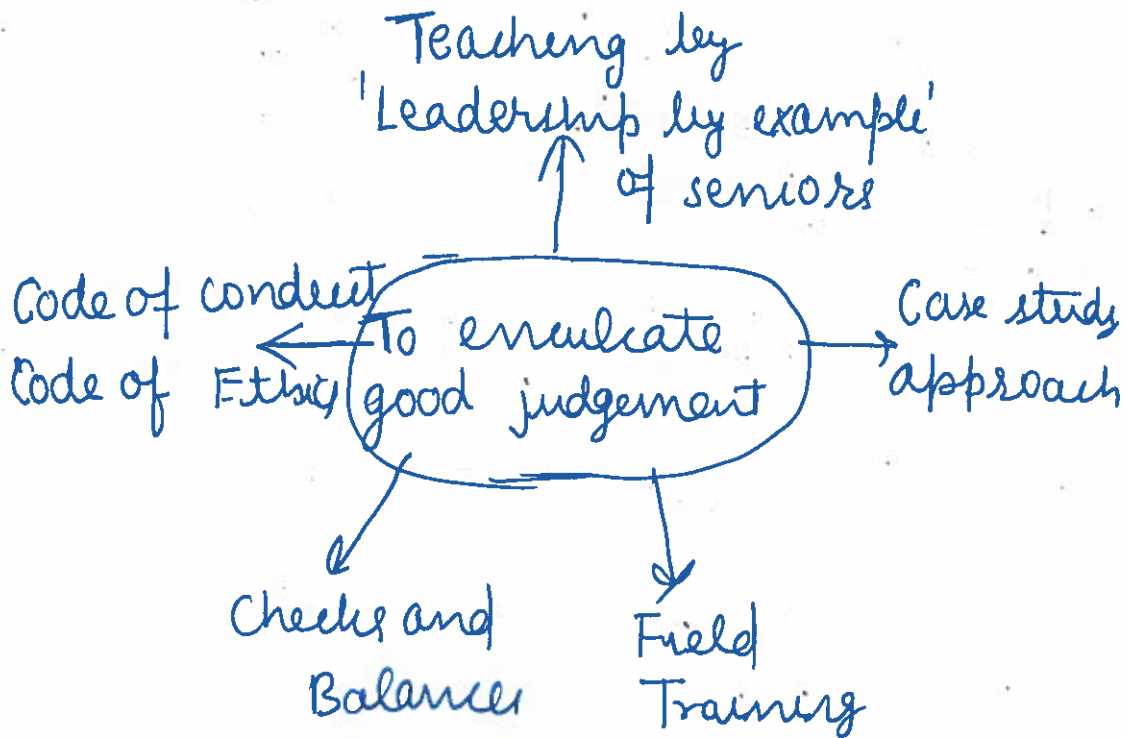 Teaching by
'Leadership by example'
of seniors
Code of conduct
Code of Ethics
To enculcate
good judgement
Case study
approach
Checks and
Balances
Field
Training